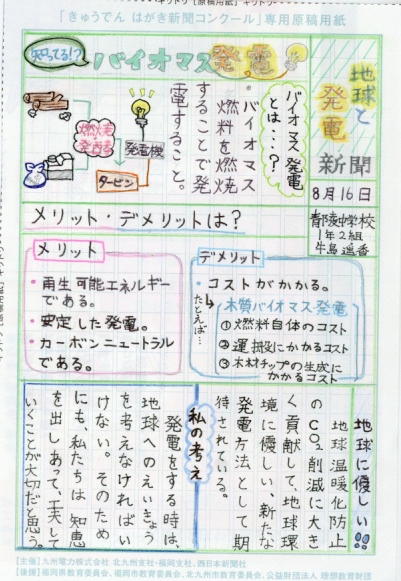 「きゅうでん はがき新聞コンクール」専用原稿用紙
地球と
発電
新聞
8月16日
1年2組
知ってる!?
バイオマス発電
バイオマス発電
とは…?
・バイオマス
燃料を燃焼
することで発
電すること。
燃焼
発電機
タービン
メリット・デメリットは?
メリット
・再生可能エネルギー
である。
・安定した発電。
・カーボンニュートラル
である。
デメリット
・コストがかかる。
たとえば…
木質バイオマス発電
①燃料自体のコスト
②運搬にかかるコスト
③木材チップの生成に
かかるコスト
地球に優しい!!
地球温暖化防止
のCO2削減に大き
く貢献して、地球環
境に優しい、新たな
発電方法として期
待されている。
私の考え
発電をする時は、
地球へのえいきょう
を考えなければい
けない。そのため
にも、私たちは知恵
を出しあって、工夫して
いくことが大切だと思う。
【主催】九州電力株式会社 北九州支社・福岡支社、西日本新聞社
【後援】福岡県教育委員会、福岡市教育委員会、北九州市教育委員会、公益財団法人 理想教育財団